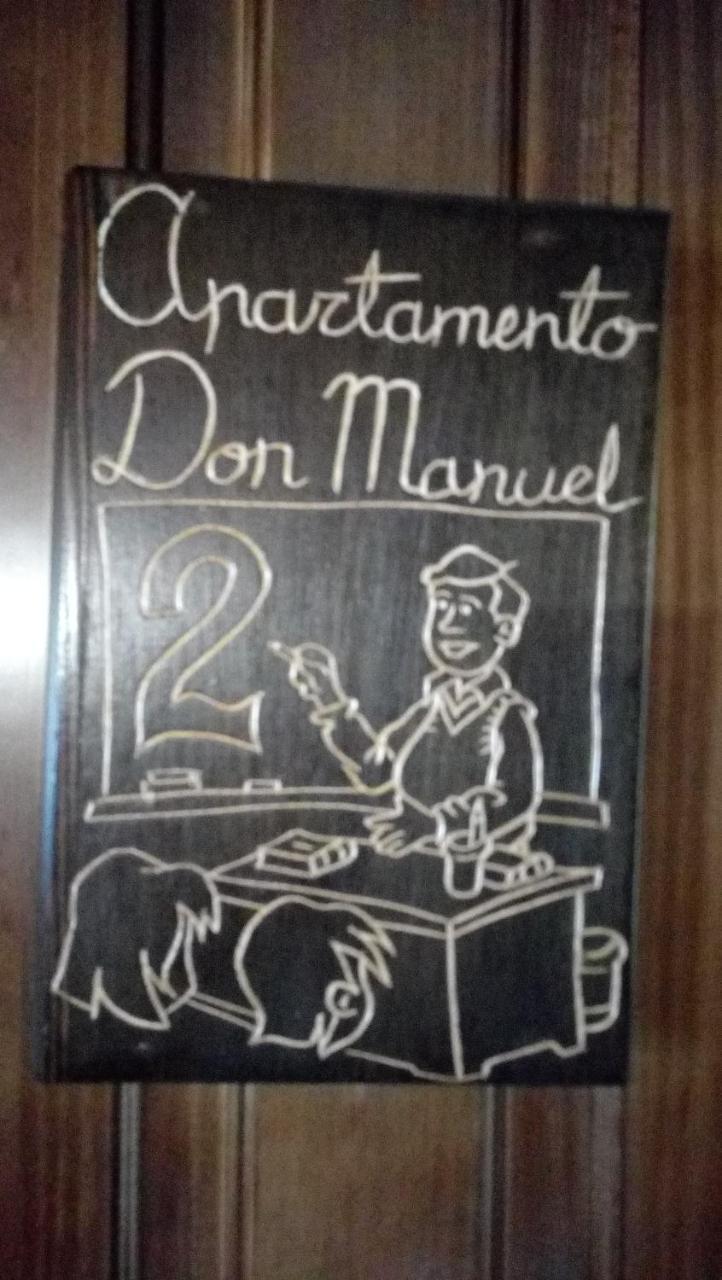 Apartamento
Don Manuel
2